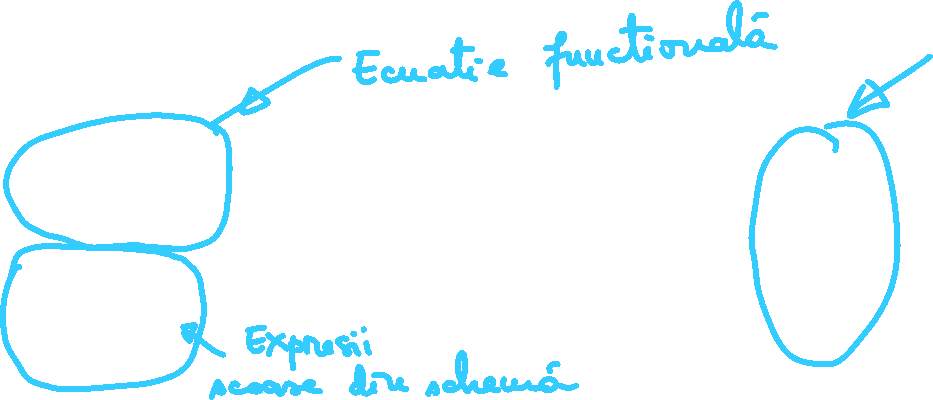 Ecuatie functională
Expresii
scoase din schemă